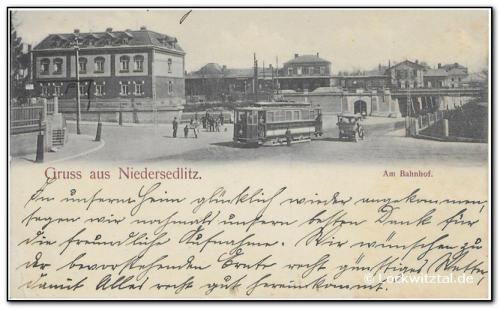 Gruss aus Niedersedlitz.
Am Bahnhof.
In unserm Heim glücklich wieder angekommen,
sagen wir nochmals unsern besten Dank für
die freundliche Aufnahme. Wir wünschen zu
der bevorstehenden Ernte recht günstiges Wetter,
damit Alles recht gut hereinkommt.
© Lockwitztal.de